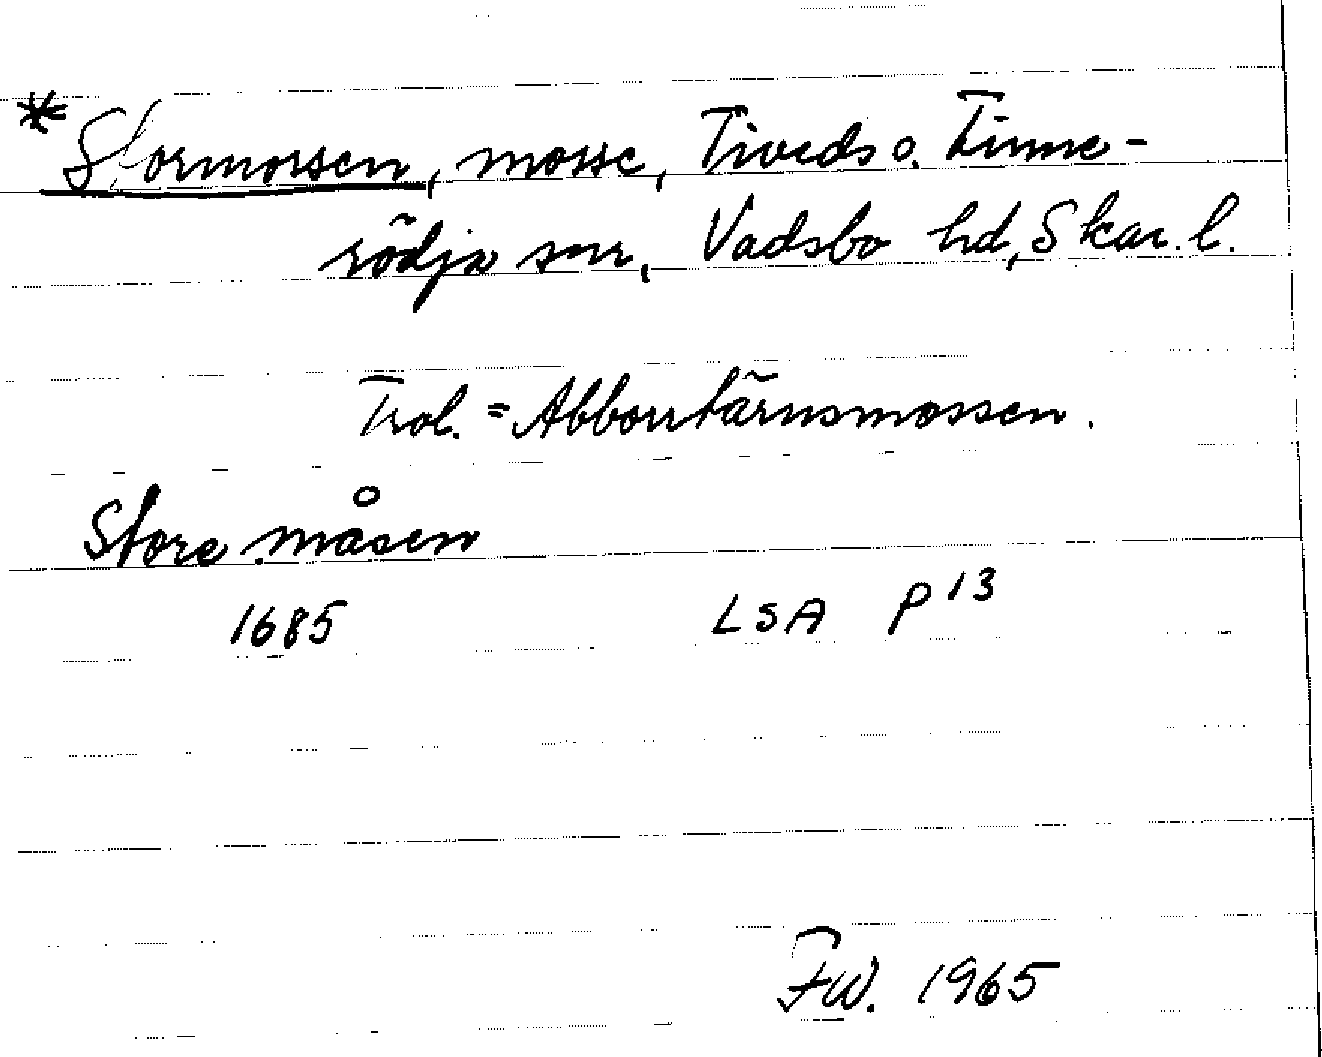 * Stormossen, mosse, Tiveds o. Finne-
rödja snr, Vadsbo hd, Skar. l.
Trol. = Abborrtärnsmossen.
Store måsen
1685 LSA P 13
FW. 1965